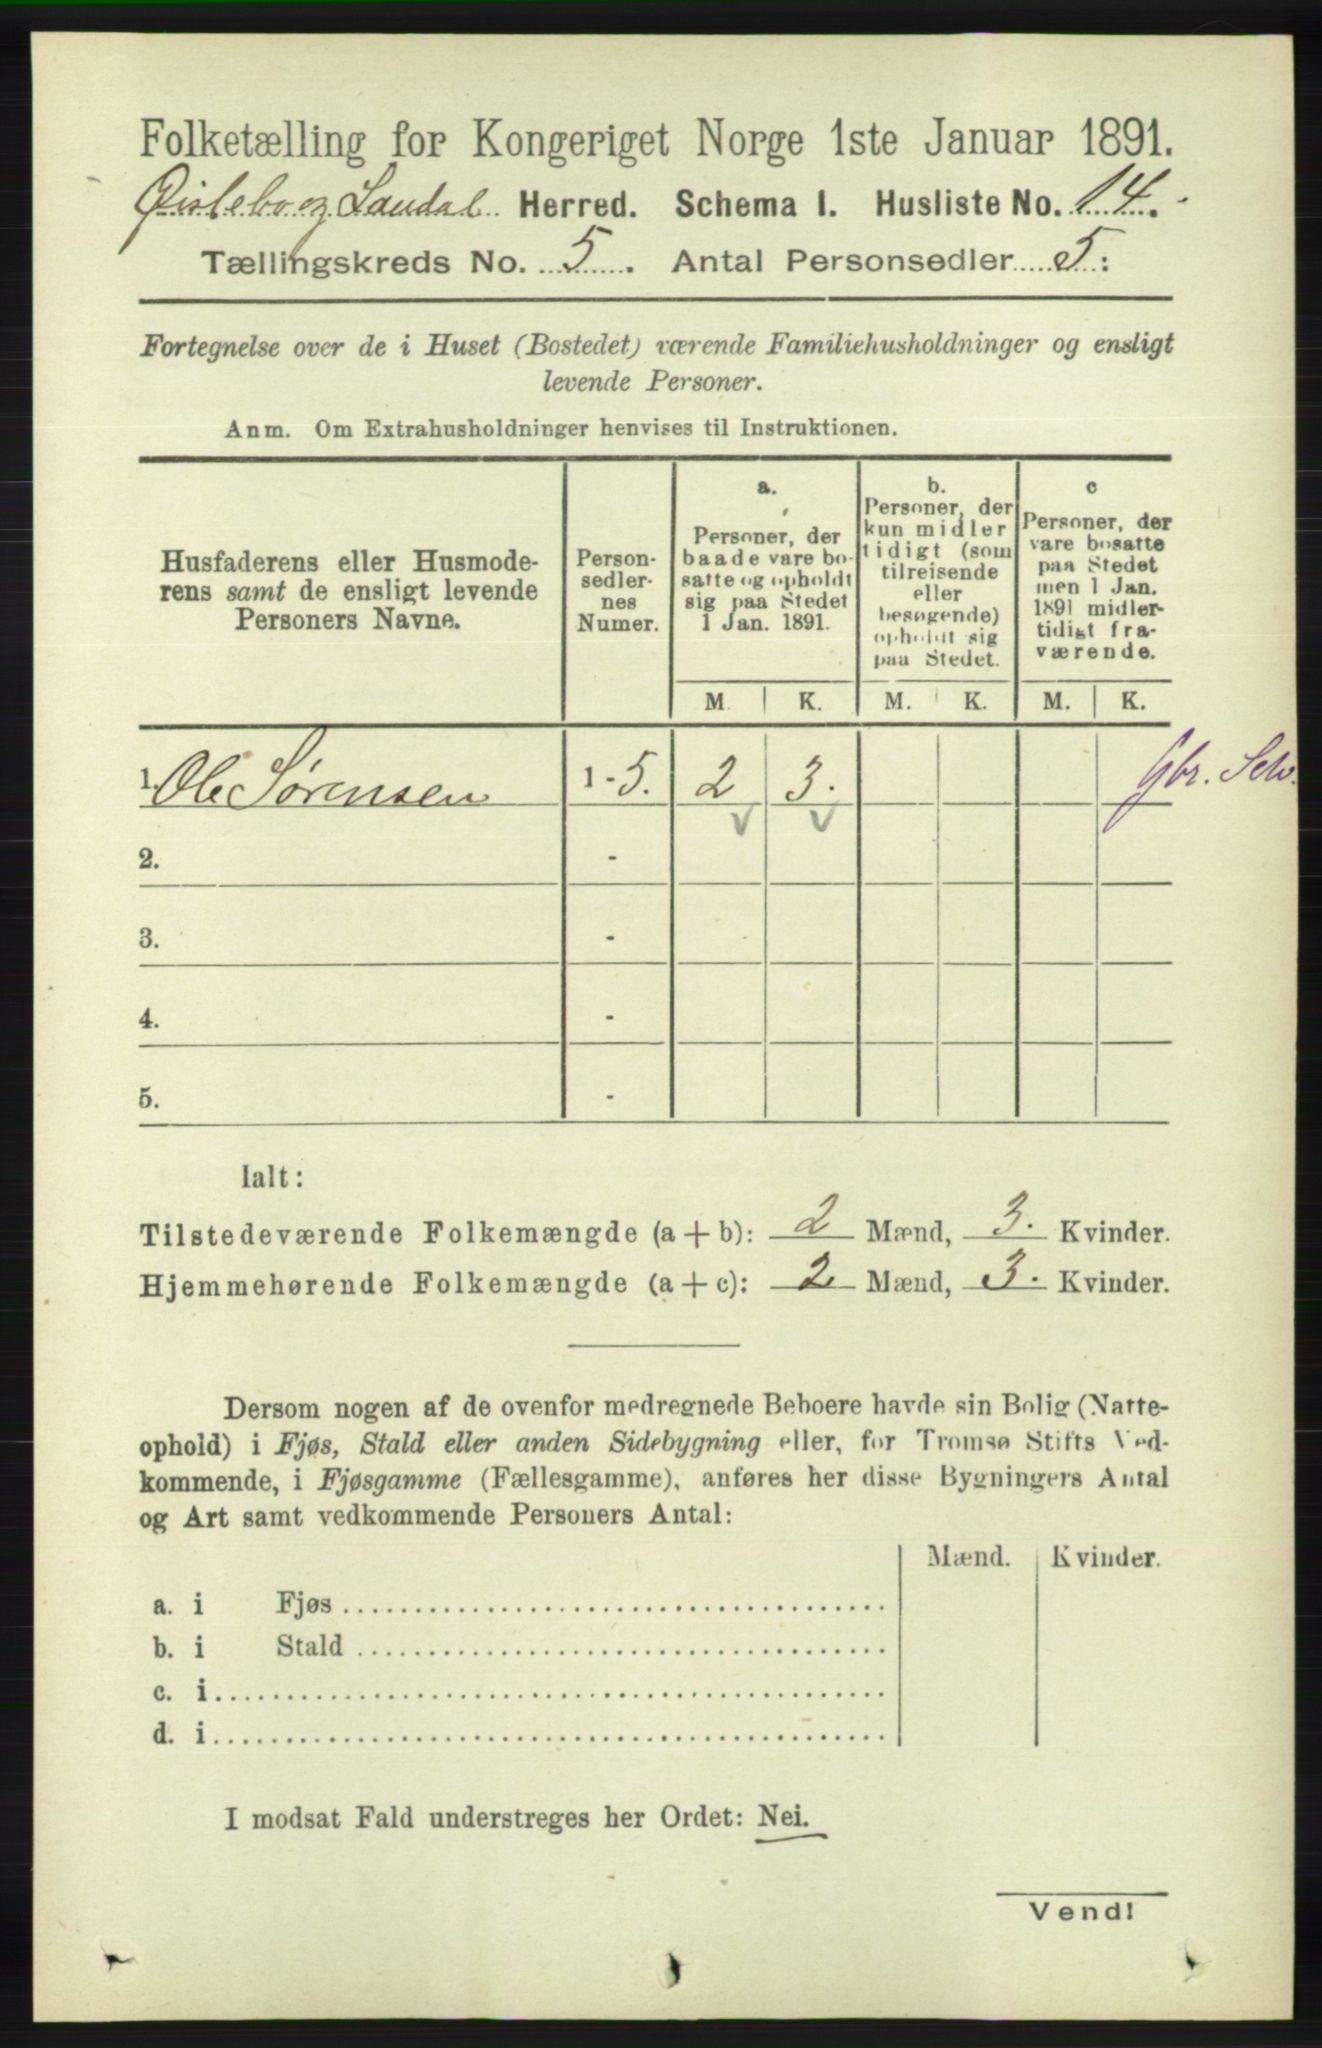 Folketælling for Kongeriget Norge 1ste Januar 1891.
Øislebo og Laudal Herred. Schema I. Husliste No. 14.
Tællingskreds No. 5. Antal Personsedler 5:
Fortegnelse over de i Huset (Bostedet) værende Familiehusholdninger og ensligt
levende Personer.
Anm. Om Extrahusholdninger henvises til Instruktionen.
Husfaderens eller Husmode-
rens samt de ensligt levende
Personers Navne.
Person-
sedler-
nes
Numer.
a.
Personer, der
baade vare bo-
satte og opholdt
sig paa Stedet
1 Jan. 1891.
b.
Personer, der
kun midler
tidigt (som
tilreisende
eller
besøgende)
opholdt sig
paa Stedet.
c
Personer, der
vare bosatte
paa Stedet
men 1 Jan.
1891 midler-
tidigt fra-
værende.
M. K. M. K. M. K.
1. Ole Sørensen 1 - 5. 2 3. Gbr. Selv.
2. -
3. -
4. -
5. -
Ialt:
Tilstedeværende Folkemængde (a + b): 2 Mænd, 3. Kvinder.
Hjemmehørende Folkemængde (a + c): 2 Mænd, 3. Kvinder.
Dersom nogen af de ovenfor medregnede Beboere havde sin Bolig (Natte-
ophold) i Fjøs, Stald eller anden Sidebygning eller, for Tromsø Stifts Ved-
kommende, i Fjøsgamme (Fællesgamme), anføres her disse Bygningers Antal
og Art samt vedkommende Personers Antal:
Mænd. Kvinder.
a. i Fjøs
b. i Stald
c. i
d. i
I modsat Fald understreges her Ordet: Nei.
Vend!